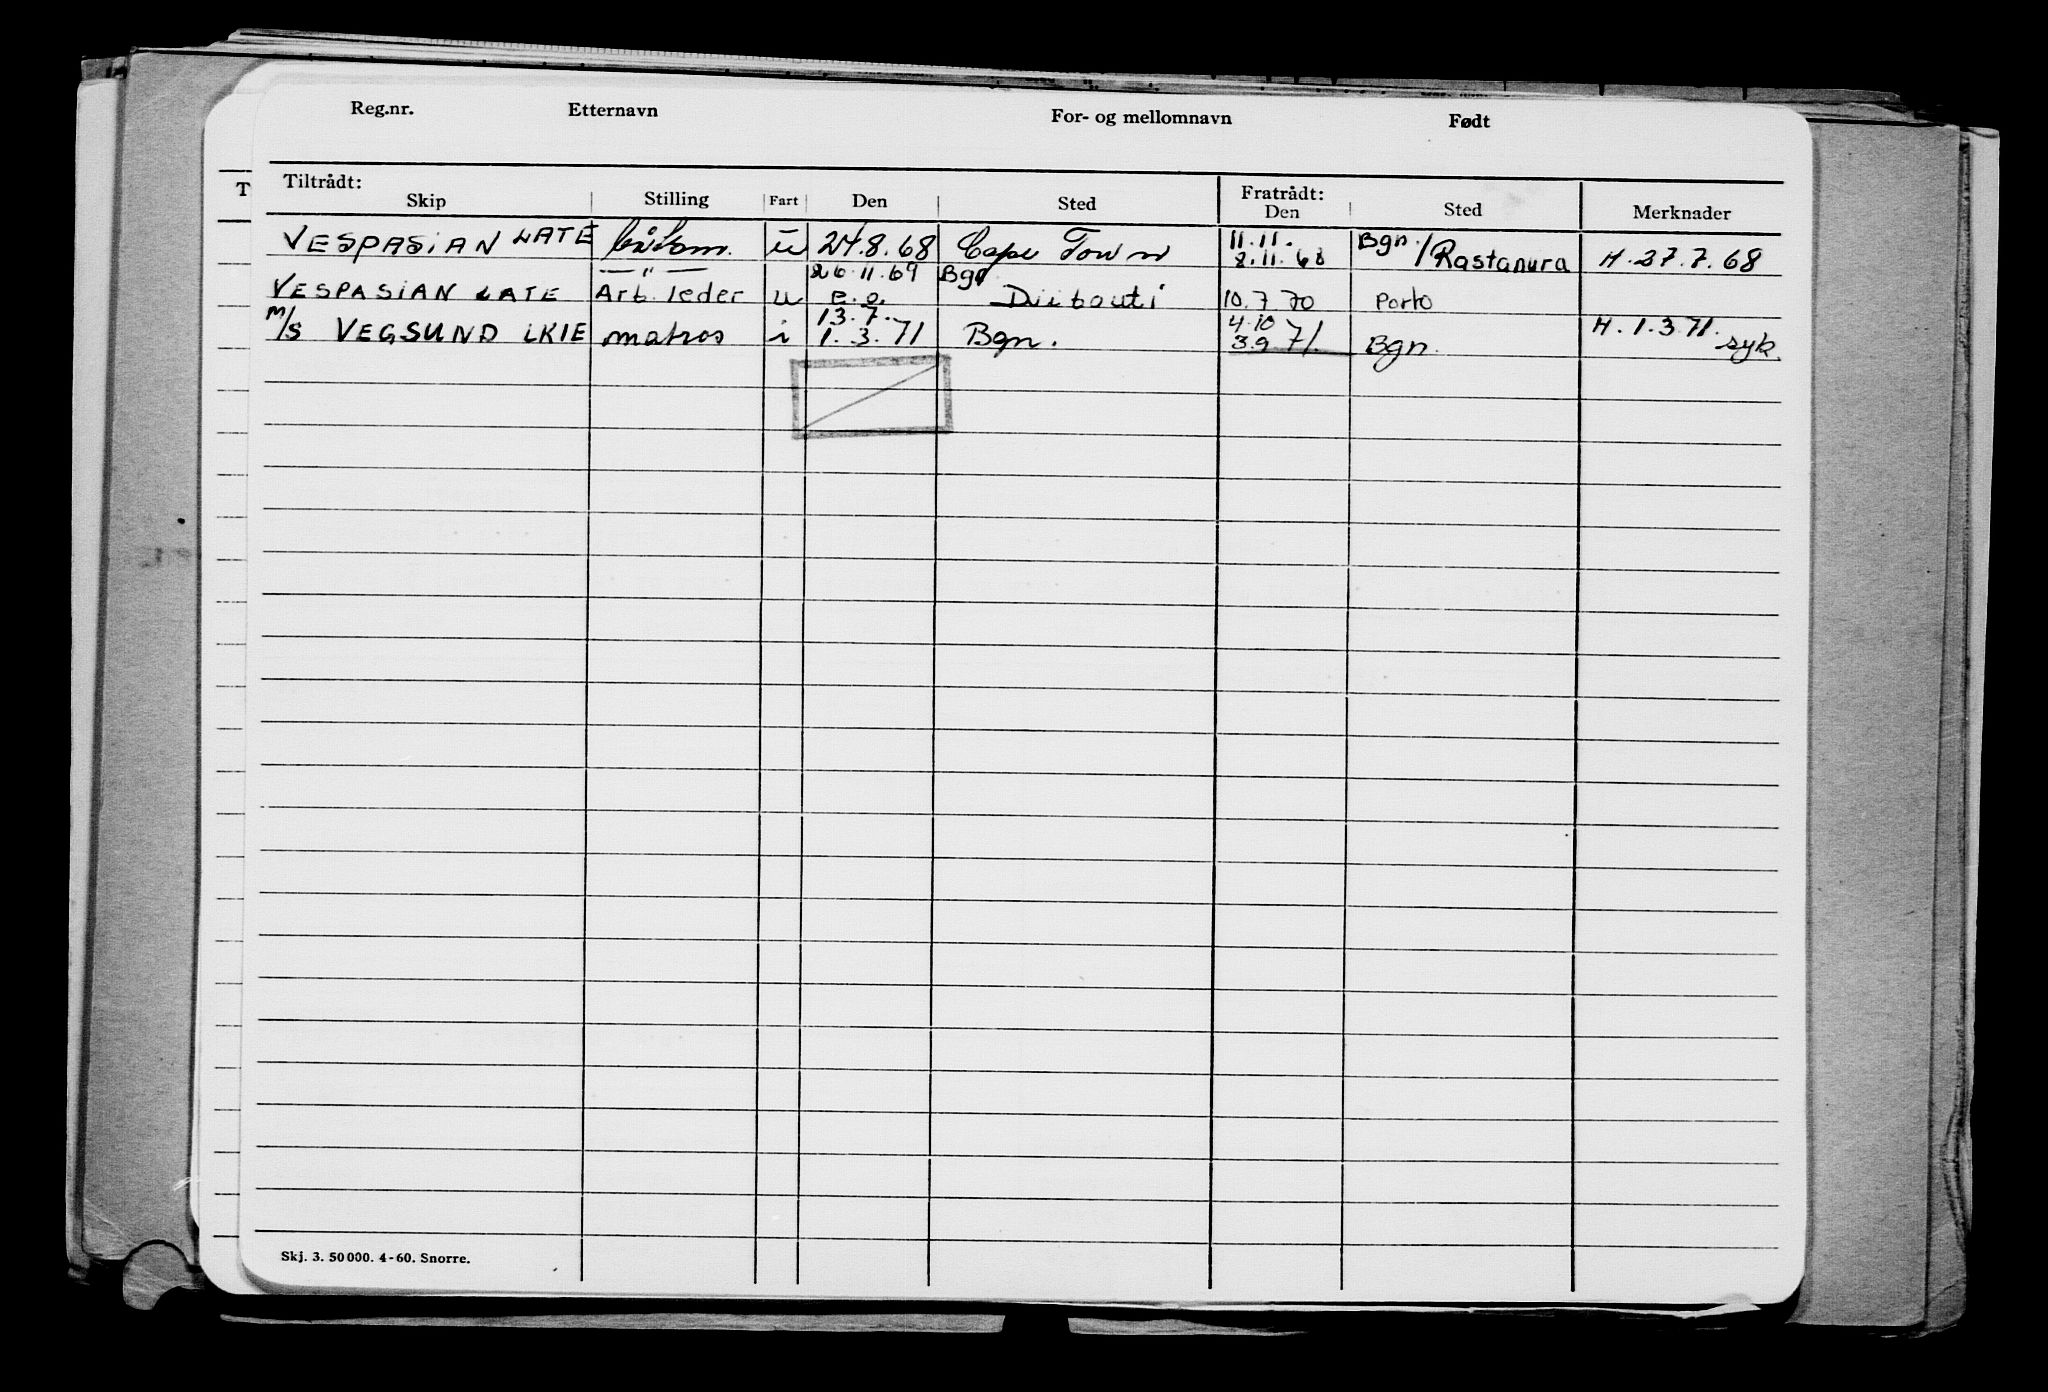 Reg.nr. Etternavn For- og mellomnavn Født
T
Tiltrådt: Fratrådt:
Skip Stilling Fart Den Sted Den Sted Merknader
VESPASIAN LATE båtsm. u 24.8.68 Cape Town 11.11. 8.11.68 Bgn./Rastanura H. 27.7.68
— " — 26.11.69 Bgn
VESPASIAN LATE Arb.leder u e.o. Djibouti 10.7.70 Porto
M/S VEGSUND LKIE matros i 13.7. 1.3.71 Bgn. 4.10 3.9 71. Bgn. H. 1.3.71. syk.
Skj. 3. 50 000. 4-60. Snorre.